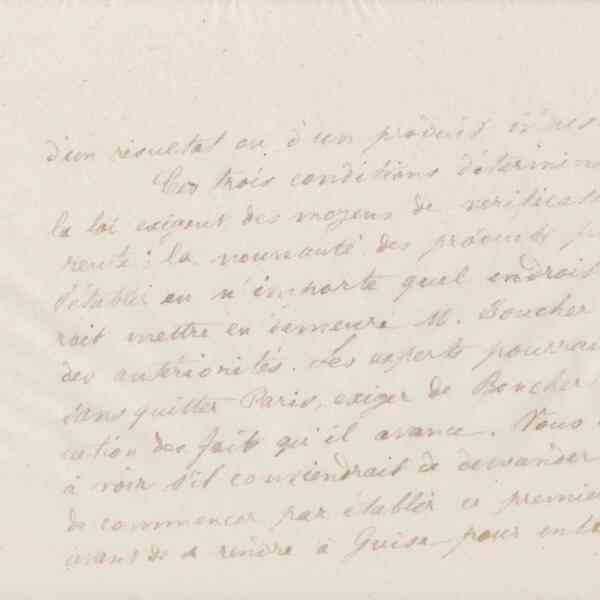 d'un résultat ou d'un produit indus
Ces trois conditions détermin
la loi exigent des moyens de verificat
rente: la nouveauté des produits
s'établir en n'importe quel endroit
rait mettre en demeure M. Boucher
des antériorités. Les experts pourrai
sans quitter Paris, exiger de Boucher
cation des faits qu'il avance. Vous
à voir s'il conviendrait de demander
de commencer par établir ce premie
avant de se rendre à Guise pour ent